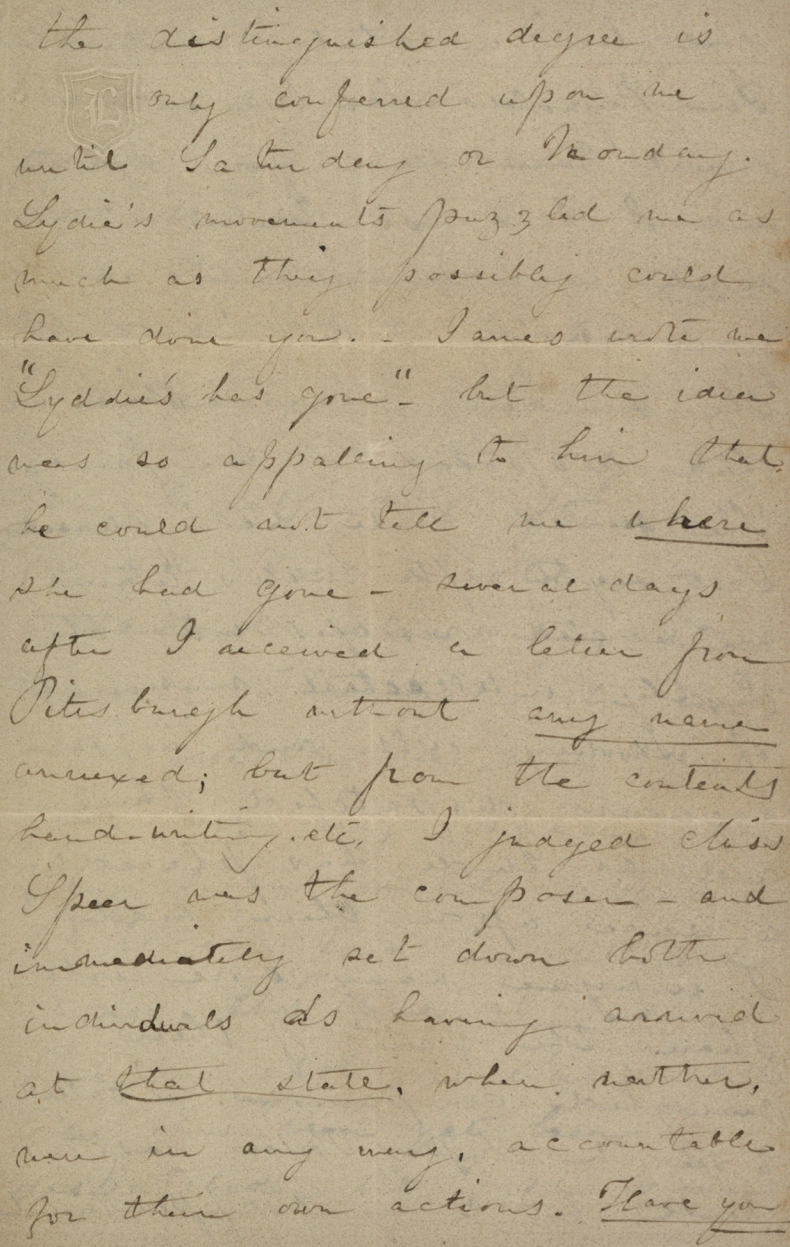 the distinguished degree is
L
only conferred upon me
until Saturday or Monday.
Lydie's movements puzzled me as
much as they possibly could
have done you. - James wrote me
"Lyddie's has gone" - but the idea
was so appalling to him that
he could not tell me where
she had gone - several days
after I received a letter from
Pittsburgh without any name
annexed; but from the contents
hand-writing. etc. I judged Miss
Speer was the composer - and
immediately set down both
individuals as having arrived
at that state, when neither,
were in any way, accountable
for their own actions. Have you